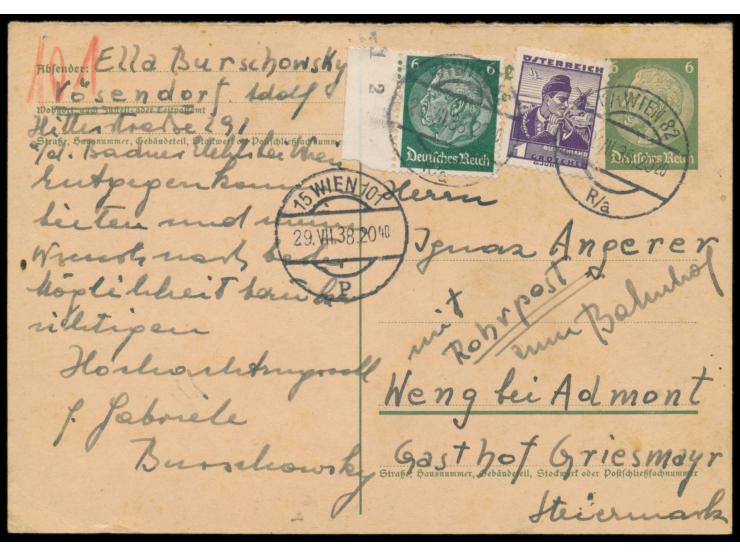 101
Absender: Ella Burschowsky
Vösendorf. Adolf
Wohnort, auch Zustell- oder Leitpostamt
Hitlerstraße 291
Straße, Hausnummer, Gebäudeteil, Stockwerk od. Postschließfachnummer
a/d. Badner bei Wien
Entgegenkom
bieten und
Wunsch nach
Möglichkeit
sichtigen
Hochachtungsvoll
f. Gabriele
Burschowsky
1 2
6 6
Deutsches Reich
ÖSTERREICH
1
BURGENLAND
GROSCHEN
6
Deutsches Reich
WIEN 82
R/a
15 WIEN 101
29.VII.38.20 40
P
Herrn
Ignaz Angerer
mit
Rohrpost
zum Bahnhof
Weng bei Admont
Gasthof Griesmayr
Straße, Hausnummer, Gebäudeteil, Stockwerk oder Postschließfachnummer
Steiermark